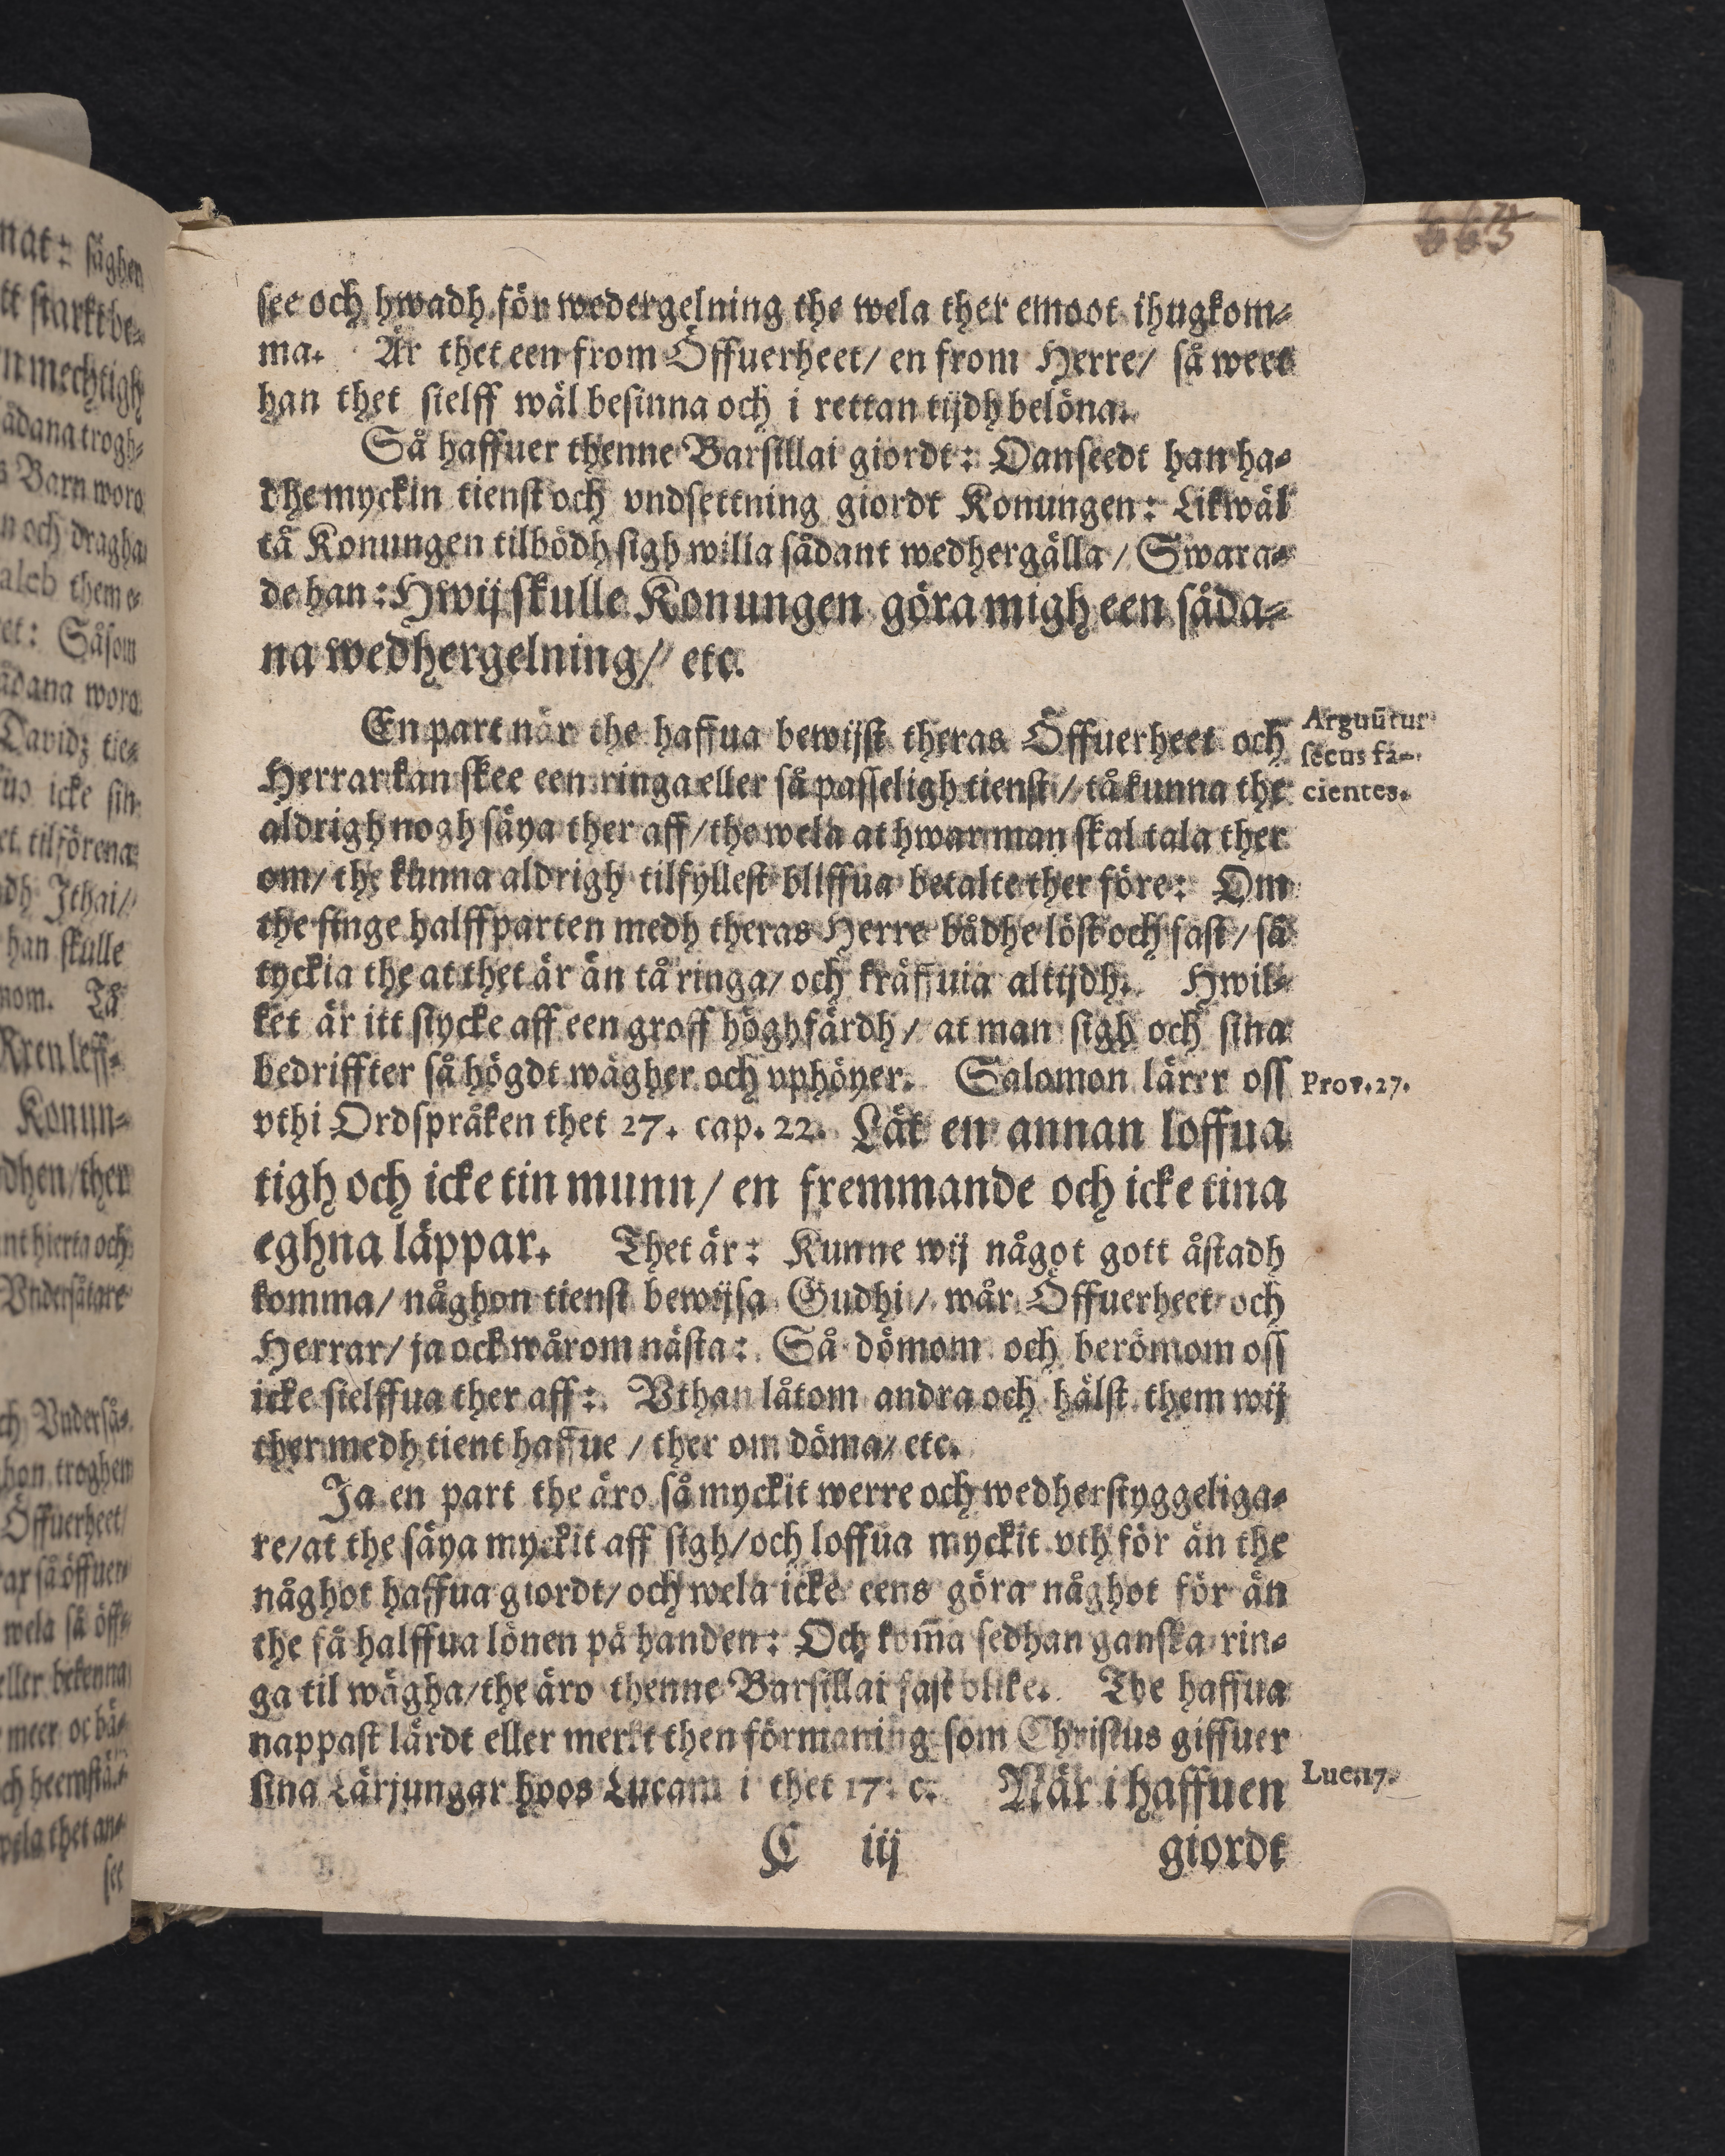 see och hwadh för wedergelning the wela ther emoot ihugkom⸗
ma. Är thet een from Öffuerheet/ en from Herre/ så weet
han thet sielff wäl besinna och i rettan tijdh belöna.
Så haffuer thenne Barsillai giordt: Oanseedt han ha⸗
dhe myckin tienst och vndsettning giordt Konungen: Likwäl
tå Konungen tilbödh sigh wilia sådant wedhergälla/ Swara⸗
de han: Hwij skulle Konungen göra migh een såda⸗
na wedhergelning/ etc.
En part när the haffua bewijst theras Öffuerheet och
Herrar kan skee een ringa eller så passeligh tienst/ tå kunna the
aldrigh nogh säya ther aff/ the wela at hwar man skal tala ther
om/ the kunna aldrigh tilfyllest bliffua betalte ther före: Om
the finge halffparten medh theras Herre bådhe löst och fast/ så
tyckia the at thet är än tå ringa/ och kräffuia alttijdh. Hwil⸗
ket är itt stycke aff een groff höghfärdh/ at man sigh och sina
bedriffter så högdt wägher och vphöyer. Salomon lärer oss
vthi Ordspråken thet 27. cap. 22. Lät en annan loffua
tigh och icke tin munn/ en fremmande och icke tina
eghna läppar. Thet är: Kunne wij något gott åstadh
komma/ någhon tienst bewijsa Gudhi/ wår Öffuerheet och
Herrar/ ja ock wårom nästa: Så dömom och berömom oss
icke sielffua ther aff: Vthan låtom andra och hälst them wij
ther medh tient haffue/ ther om döma/ etc.
Ja en part the äro så myckit werre och wedherstyggeliga⸗
re/ at the säya myckit aff sigh/ och loffua myckit vth för än the
någhot haffua giordt/ och wela icke eens göra någhot för än
the få halffua lönen på handen: Och kom̃a sedhan ganska rin⸗
ga til wägha/ the äro thenne Barsillai fast olike. The haffua
nappast lärdt eller merkt then förmaning som Christus giffuer
sina Lärjungar hoos Lucam i thet 17. c. När i haffuen
C iij giordt
Arguūtur
secus fa⸗
cientes.
Prov. 27.
Luc. 17.